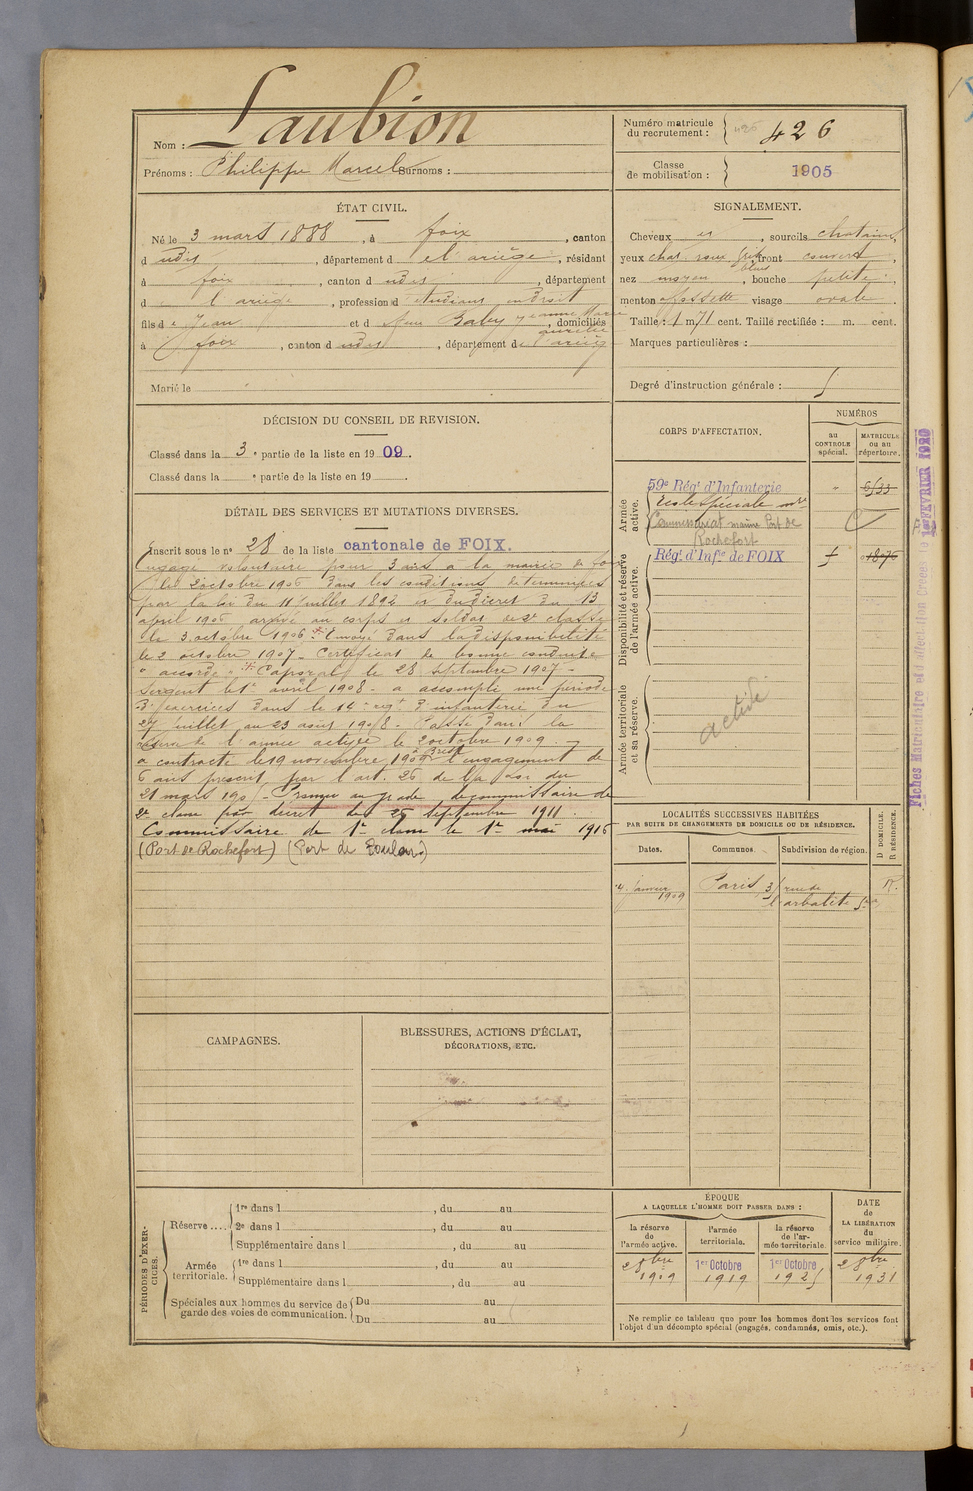 Nom : Laubion
Prénoms : Philippe Marcel Surnoms :
Numéro matricule du recrutement : 426
Classe de mobilisation : 1905
ÉTAT CIVIL.
Né le 3 mars 1888, à foix, canton
d udit, département d e l'ariège, résidant
à foix, canton d udit, département
d e l'ariège, profession d'étudiant en droit
fils de Jean et d Baby Jeanne Marie aurelie, domiciliés
à foix, canton d udit, département de l'ariège
Marié le
SIGNALEMENT.
Cheveux et, sourcils chatains,
yeux chat. roux, front couvert,
nez moyen, bouche petite,
menton fossette visage ovale.
Taille : 1 m 71 cent. Taille rectifiée : m. cent.
Marques particulières :
Degré d'instruction générale :
DÉCISION DU CONSEIL DE REVISION.
Classé dans la 3e partie de la liste en 1909.
Classé dans la e partie de la liste en 19 .
DÉTAIL DES SERVICES ET MUTATIONS DIVERSES.
Inscrit sous le n° 28 de la liste cantonale de FOIX.
Engagé volontaire pour 3 ans à la mairie de foix
le 2 octobre 1906 dans les conditions déterminées
par la loi du 11 juillet 1892 et du décret du 13
april 1906 arrivé au corps et soldat de 2e classe
le 3 octobre 1906. Envoyé dans la disponibilité
le 2 octobre 1907. Certificat de bonne conduite
"accordé". Caporal le 28 septembre 1907 -
Sergent le 1er avril 1908 - a accompli une période
d'exercices dans le 14e régt d'infanterie du
27 juillet au 23 août 1908 - Passé dans la
réserve de l'armée active le 2 octobre 1909.
a contracté le 19 novembre 1909 à Brest l'engagement de
6 ans prescrit par l'art. 26 de la loi du
21 mars 1905 - Promu au grade de commissaire de
2e classe par décret du 25 septembre 1911.
Commissaire de 1e classe le 1er mai 1916
(Port de Rochefort) (Port de Toulon)
CORPS D'AFFECTATION.
NUMÉROS
au CONTROLE spécial.
MATRICULE ou au répertoire.
Armée active.
59e Régt d'Infanterie " 6133
Ecole Spéciale
Commissariat marine Port de
Rochefort
Disponibilité et réserve de l'armée active.
Régt d'Infie de FOIX
Armée territoriale et sa réserve.
activé
Fiches Matriculaire et d'affectation Créées le 1er FEVRIER 1920
LOCALITÉS SUCCESSIVES HABITÉES
PAR SUITE DE CHANGEMENTS DE DOMICILE OU DE RÉSIDENCE.
D. DOMICILE.
R. RÉSIDENCE.
Dates.
Communes.
Subdivision de région.
4 janvier 1909 Paris, 31 rue de l'arbalète R.
CAMPAGNES.
BLESSURES, ACTIONS D'ÉCLAT,
DÉCORATIONS, ETC.
PÉRIODES D'EXERCICES.
Réserve ....
1re dans l , du au
2e dans l , du au
Supplémentaire dans l , du au
Armée territoriale.
1re dans l , du au
Supplémentaire dans l , du au
Spéciales aux hommes du service de garde des voies de communication.
Du au
Du au
ÉPOQUE
A LAQUELLE L'HOMME DOIT PASSER DANS :
la réserve de l'armée active.
l'armée territoriale.
la réserve de l'armée territoriale.
DATE de LA LIBÉRATION du service militaire.
2 8bre 1909
1er Octobre 1919
1er Octobre 1925
2 8bre 1931
Ne remplir ce tableau que pour les hommes dont les services font
l'objet d'un décompte spécial (engagés, condamnés, omis, etc.).